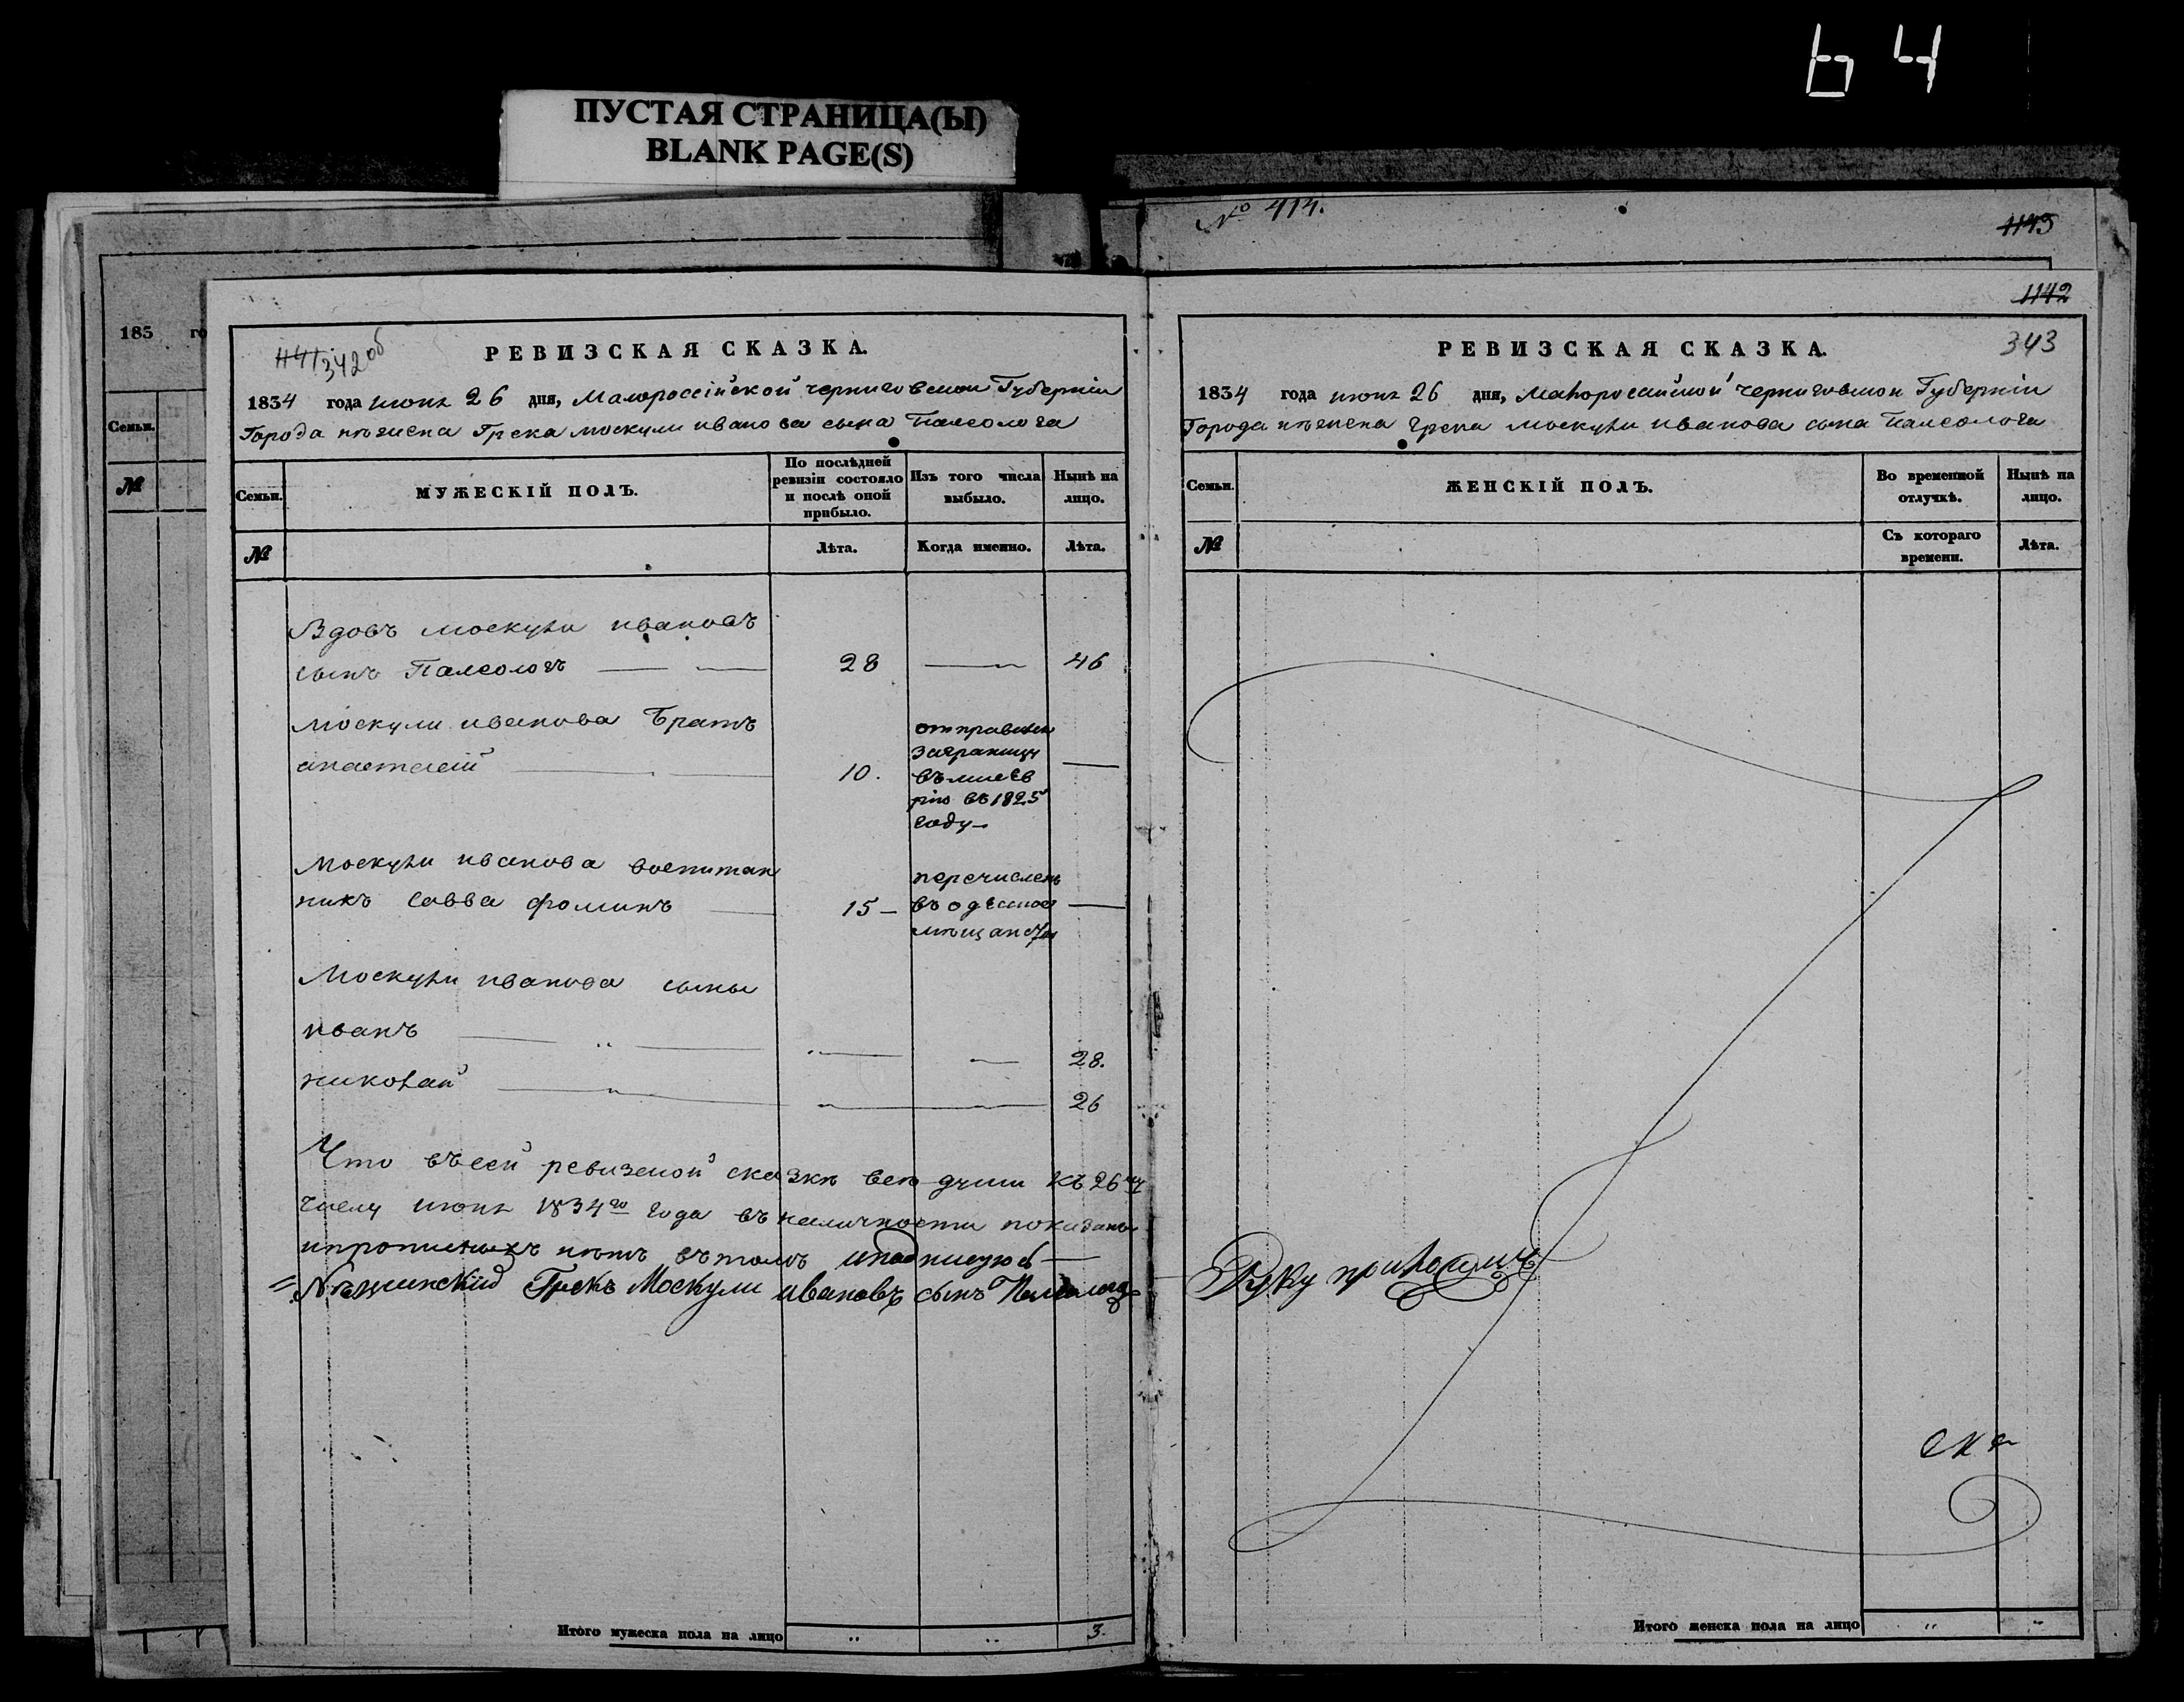 64
ПУСТАЯ СТРАНИЦА(Ы)
BLANK PAGE(S)
№ 414.
1143
1142
185 го
Семьи.
№
1141 342об
РЕВИЗСКАЯ СКАЗКА.
1834 года июня 26 дня, Малороссійской Черниговской Губерніи
Города нѣжина Грека москули иванова сына Палеолога
Семьи.
МУЖЕСКІЙ ПОЛЪ.
По послѣдней ревизіи состояло и послѣ оной прибыло.
Изъ того числа выбыло.
Нынѣ на лицо.
№
Лѣта.
Когда именно.
Лѣта.
Вдовъ москули ивановъ
сынъ Палеологъ 28 46
москули иванова Братъ
анастасій 10.
отправился
заграницу
въ
рію въ 1825
году
москули иванова воспитан
никъ савва фоминъ 15
перечисленъ
въ одесское
мѣщанство
Москули иванова сыны
иванъ 28.
николай 26
Что въ сей ревизской сказкѣ всѣ души къ 26му
числу июня 1834го года въ наличности показаны
и прописныхъ нѣтъ въ томъ и подписуюсь
Нѣжинскій Грекъ Москули ивановъ сынъ Палеологъ
Итого мужеска пола на лицо 3.
343
РЕВИЗСКАЯ СКАЗКА.
1834 года июня 26 дня, Малороссійской Черниговской Губерніи
Города нѣжина Грека москули иванова сына Палеолога
Семьи.
ЖЕНСКІЙ ПОЛЪ.
Во временной отлучкѣ.
Нынѣ на лицо.
№
Съ котораго времени.
Лѣта.
Руку приложилъ
Итого женска пола на лицо